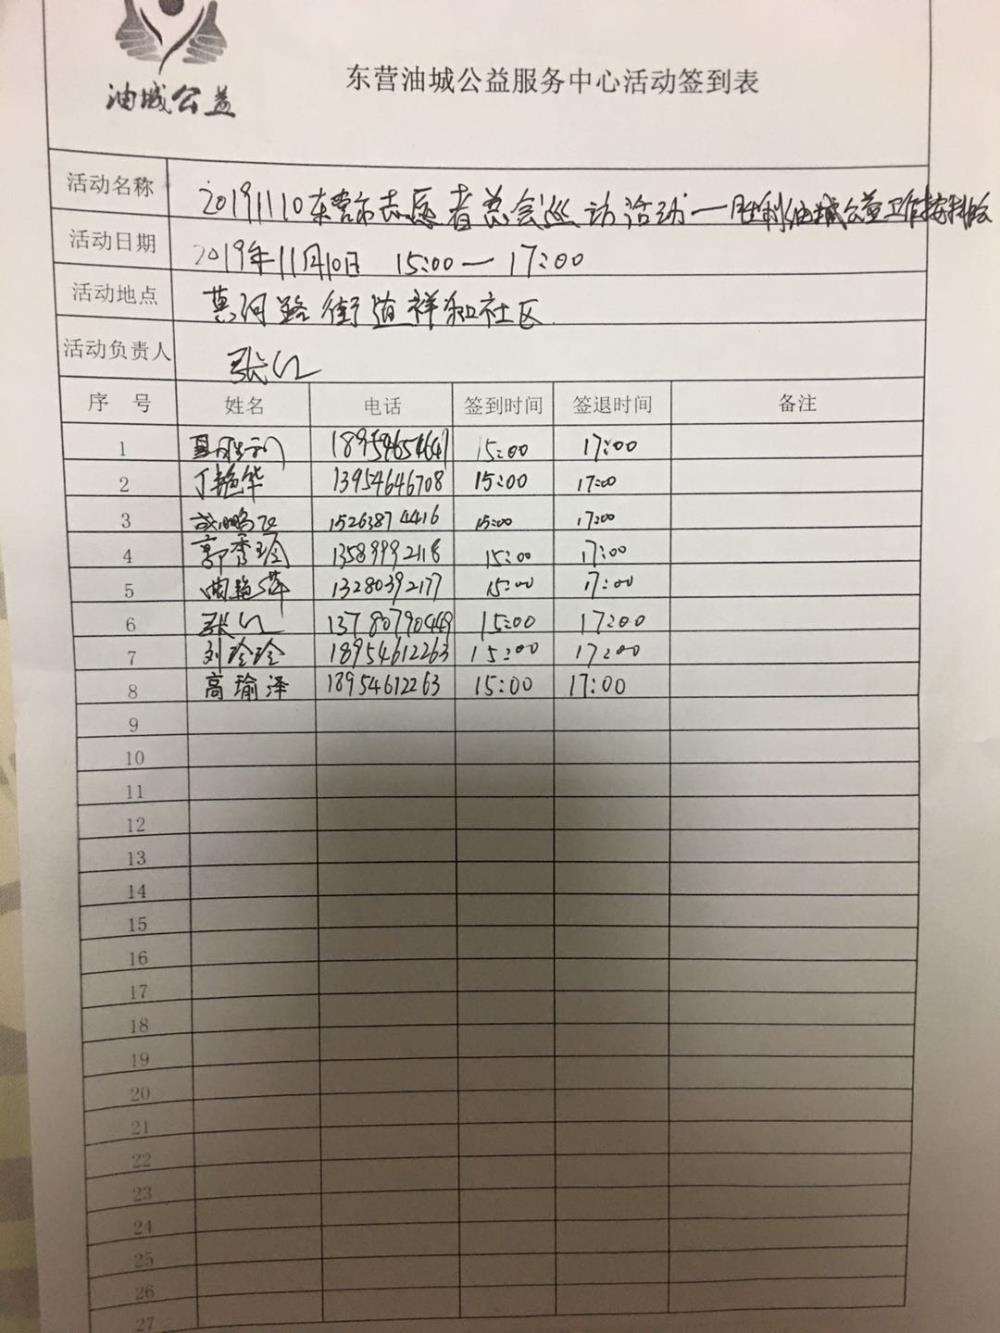 油城公益
东营油城公益服务中心活动签到表
活动名称 20191110东营市志愿者总会巡访活动—胜利油城公益工作
活动日期 2019年11月10日 15:00—17:00
活动地点 黄河路街道祥和社区
活动负责人 张红
序 号 姓名 电话 签到时间 签退时间 备注
1 15:00 17:00
2 丁艳华 13954646708 15:00 17:00
3 15263874416 15:00 17:00
4 郭秀玲 13589992118 15:00 17:00
5 曲艳萍 13280392177 15:00 17:00
6 张红 13780790449 15:00 17:00
7 刘玲玲 18954612263 15:00 17:00
8 高瑜泽 18954612263 15:00 17:00
9
10
11
12
13
14
15
16
17
18
19
20
21
22
23
24
25
26
27